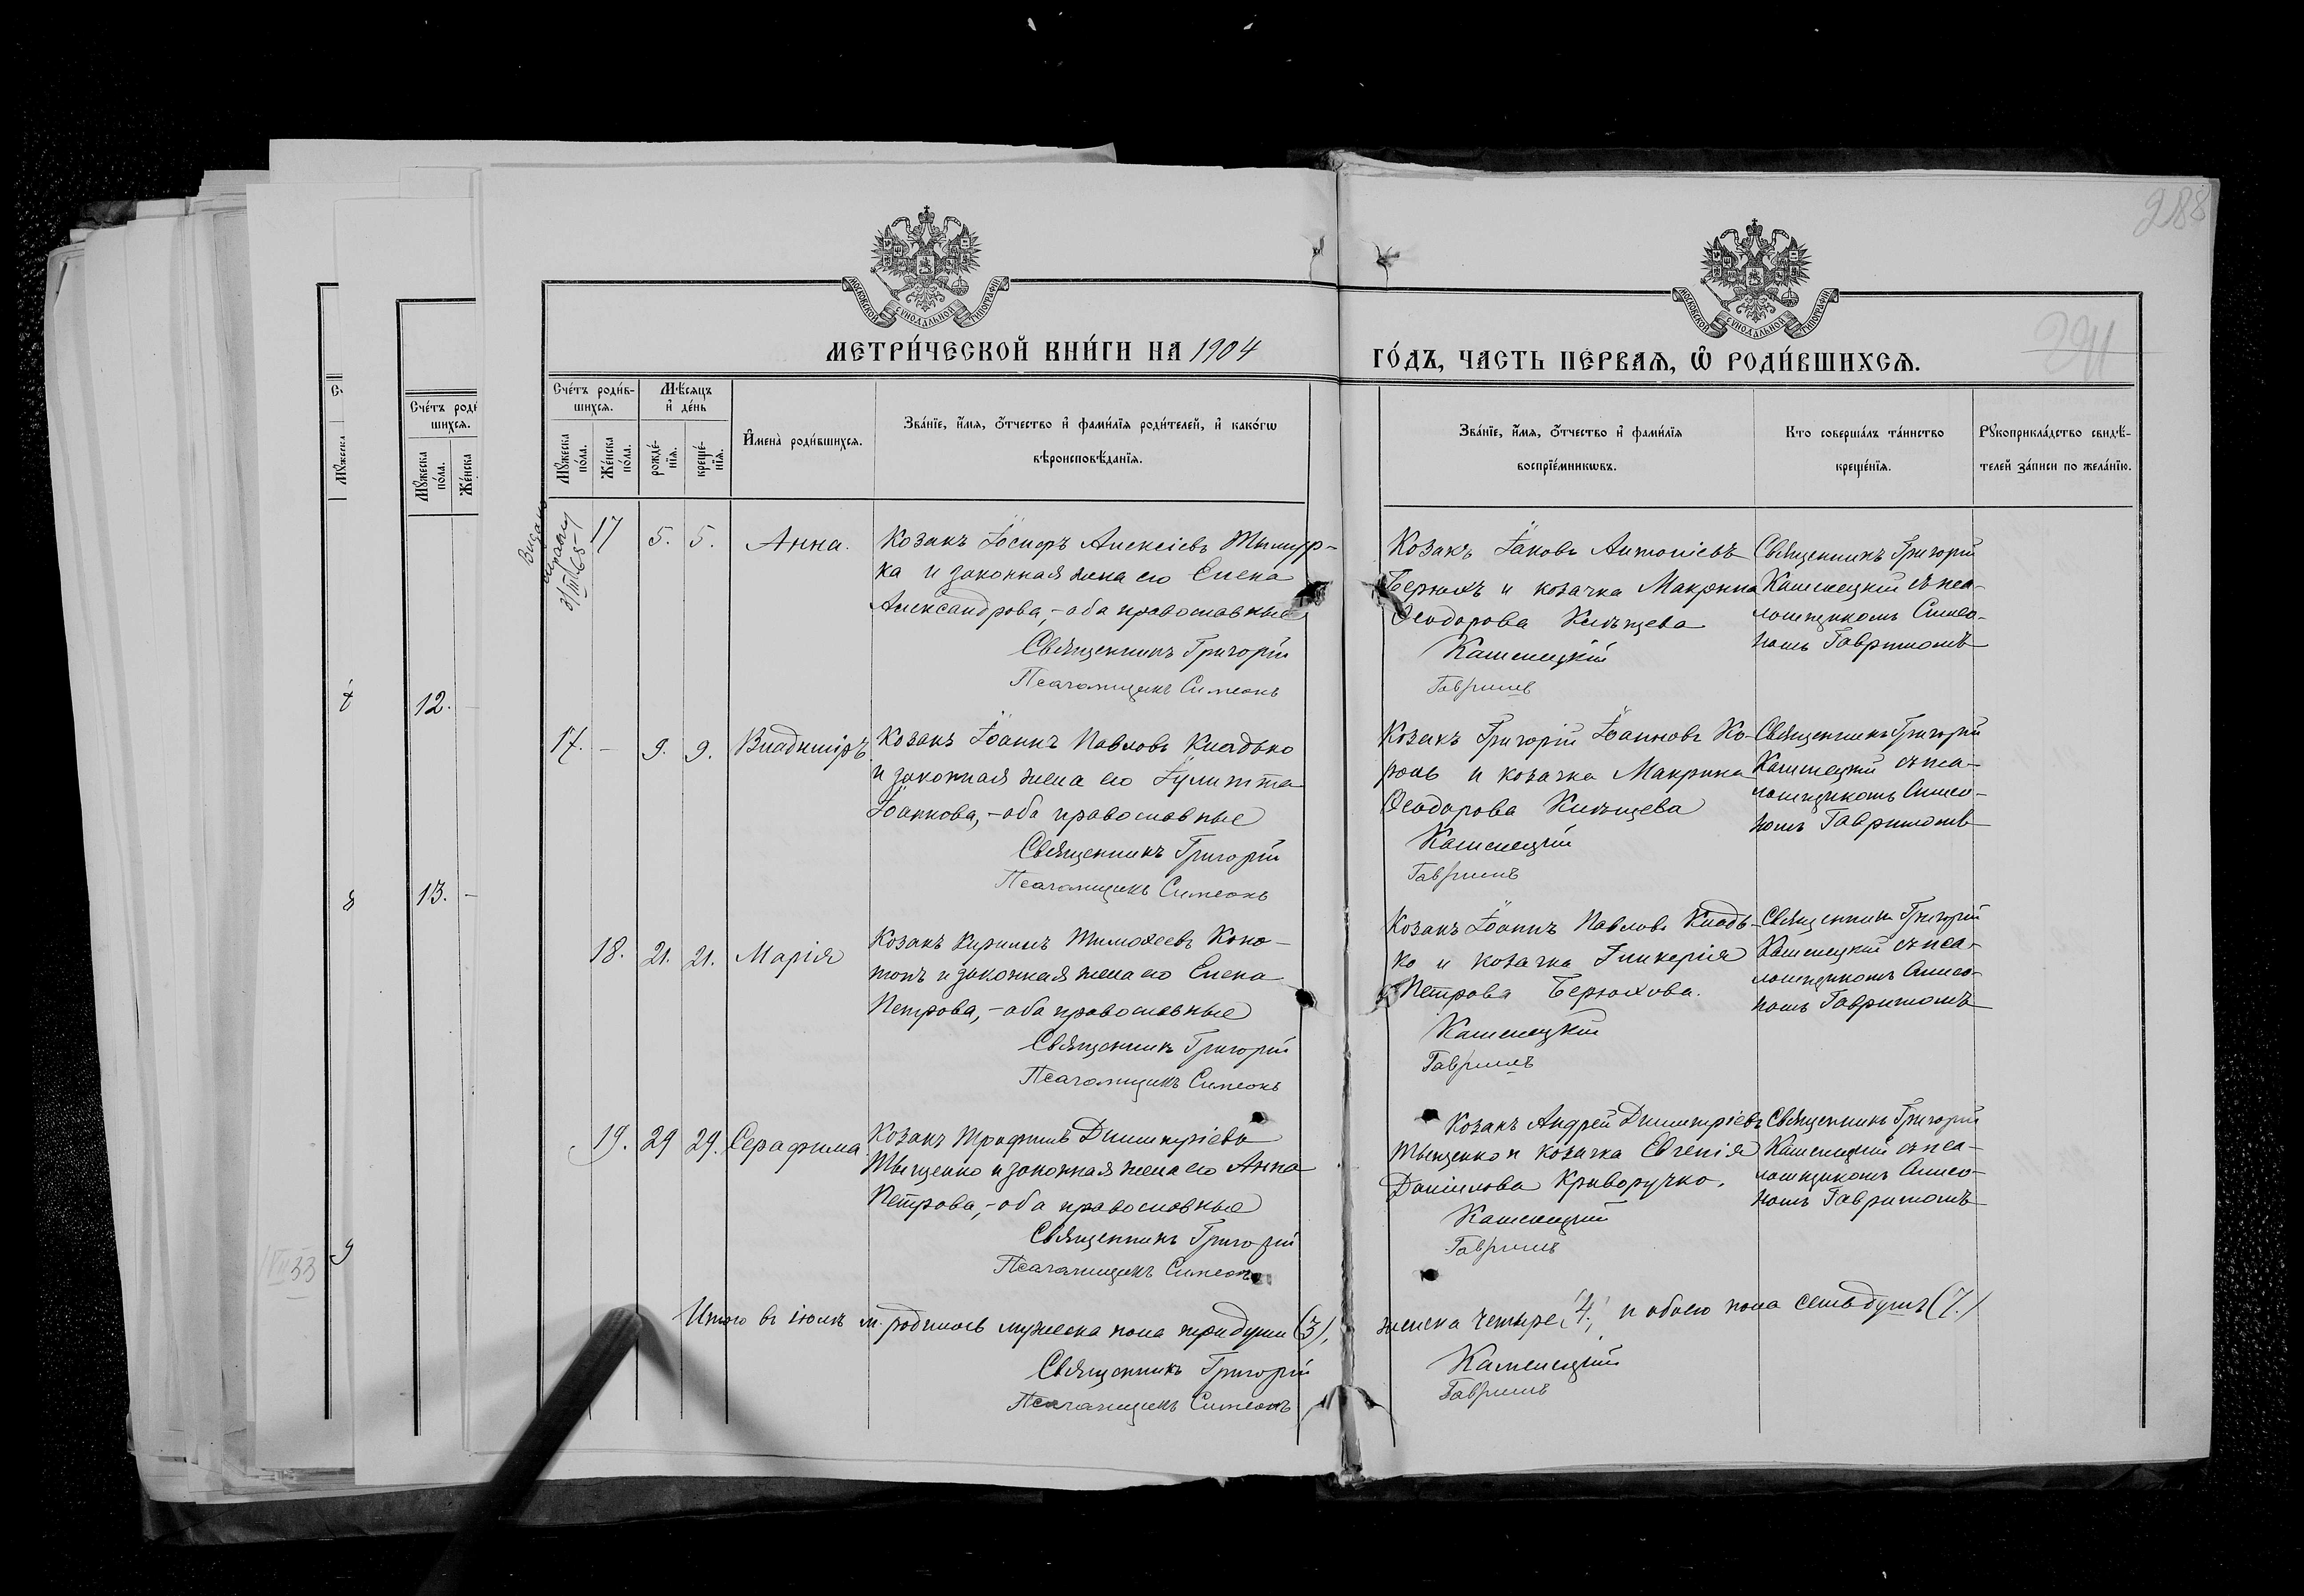 288
МОСКОВСКОЙ СѴНОДАЛЬНОЙ ТИПОГРАФІИ
МОСКОВСКОЙ СѴНОДАЛЬНОЙ ТИПОГРАФІИ
МЕТРИ́ЧЕСКОЙ КНИ́ГИ НА 1904
ГО́ДЪ, ЧАСТЬ ПЕ́РВАѦ, Ѡ҆ РОДИ́ВШИХСѦ.
Сче́тъ роди́в-
шихсѧ.
Мꙋ́жеска по́ла.
Же́нска по́ла.
Мѣ́сѧцъ
и҆ де́нь
рожде́-нїѧ.
креще́-нїѧ.
И҆мена̀ роди́вшихсѧ.
Зва́нїе, и҆́мѧ, ѻ҆́тчество и҆ фами́лїѧ роди́телей, и҆ како́гѡ
вѣроисповѣ́данїѧ.
Зва́нїе, и҆́мѧ, ѻ҆́тчество и҆ фами́лїѧ
воспрїе́мникѡвъ.
Кто соверша́лъ та́инство
креще́нїѧ.
Рꙋкоприкла́дство свидѣ́-
телей за́писи по жела́нїю.
Сче́тъ роди
шихсѧ.
Мꙋ́жеска
по́ла.
Же́нска
12.
13.
17 5. 5. Анна.
Козакъ Іосифъ Алексіевъ
ка и законная жена его Елена
Александрова, - оба православные
Священникъ Григорій
Псаломщикъ Симеонъ
Козакъ Іаковъ Антоніевъ
Берюхъ и козачка Макрина
Ѳеодорова
Каменецкій
Гавришъ
Священникъ Григорій
Каменецкій съ пса-
ломщикомъ Симео-
номъ Гавришомъ
17. - 9. 9. Владиміръ
Козакъ Іоаннъ Павловъ Кладько
и законная жена его Іулитта
Іоаннова, - оба православные
Священникъ Григорій
Псаломщикъ Симеонъ
Козакъ Григорій Іоанновъ Ко-
роль и козачка Макрина
Ѳеодорова
Каменецкій
Гавришъ
Священникъ Григорій
Каменецкій съ пса-
ломщикомъ Симео-
номъ Гавришомъ
18. 21. 21. Марія
Козакъ Кириллъ Тимоѳеевъ Коно-
топъ и законная жена его Елена
Петрова, - оба православные
Священникъ Григорій
Псаломщикъ Симеонъ
Козакъ Іоаннъ Павловъ Кладь-
ко и козачка Гликерія
Петрова Берюхова.
Каменецкій
Гавришъ
Священникъ Григорій
Каменецкій съ пса-
ломщикомъ Симео-
номъ Гавришомъ
19. 29 29. Серафима
Козакъ Трофимъ Димитріевъ
Тыщенко и законная жена его Анна
Петрова, - оба православные
Священникъ Григорій
Псаломщикъ Симеонъ
Козакъ Андрей Димитріевъ
Тыщенко и козачка Евгенія
Даніилова Криворучко.
Каменецкій
Гавришъ
Священникъ Григорій
Каменецкій съ пса-
ломщикомъ Симео-
номъ Гавришомъ
Итого въ іюлѣ м. родилось мужеска пола три души (3),
женска четыре, 4, и обоего пола семь душъ (7.)
Священникъ Григорій
Каменецкій
Псаломщикъ Симеонъ
Гавришъ